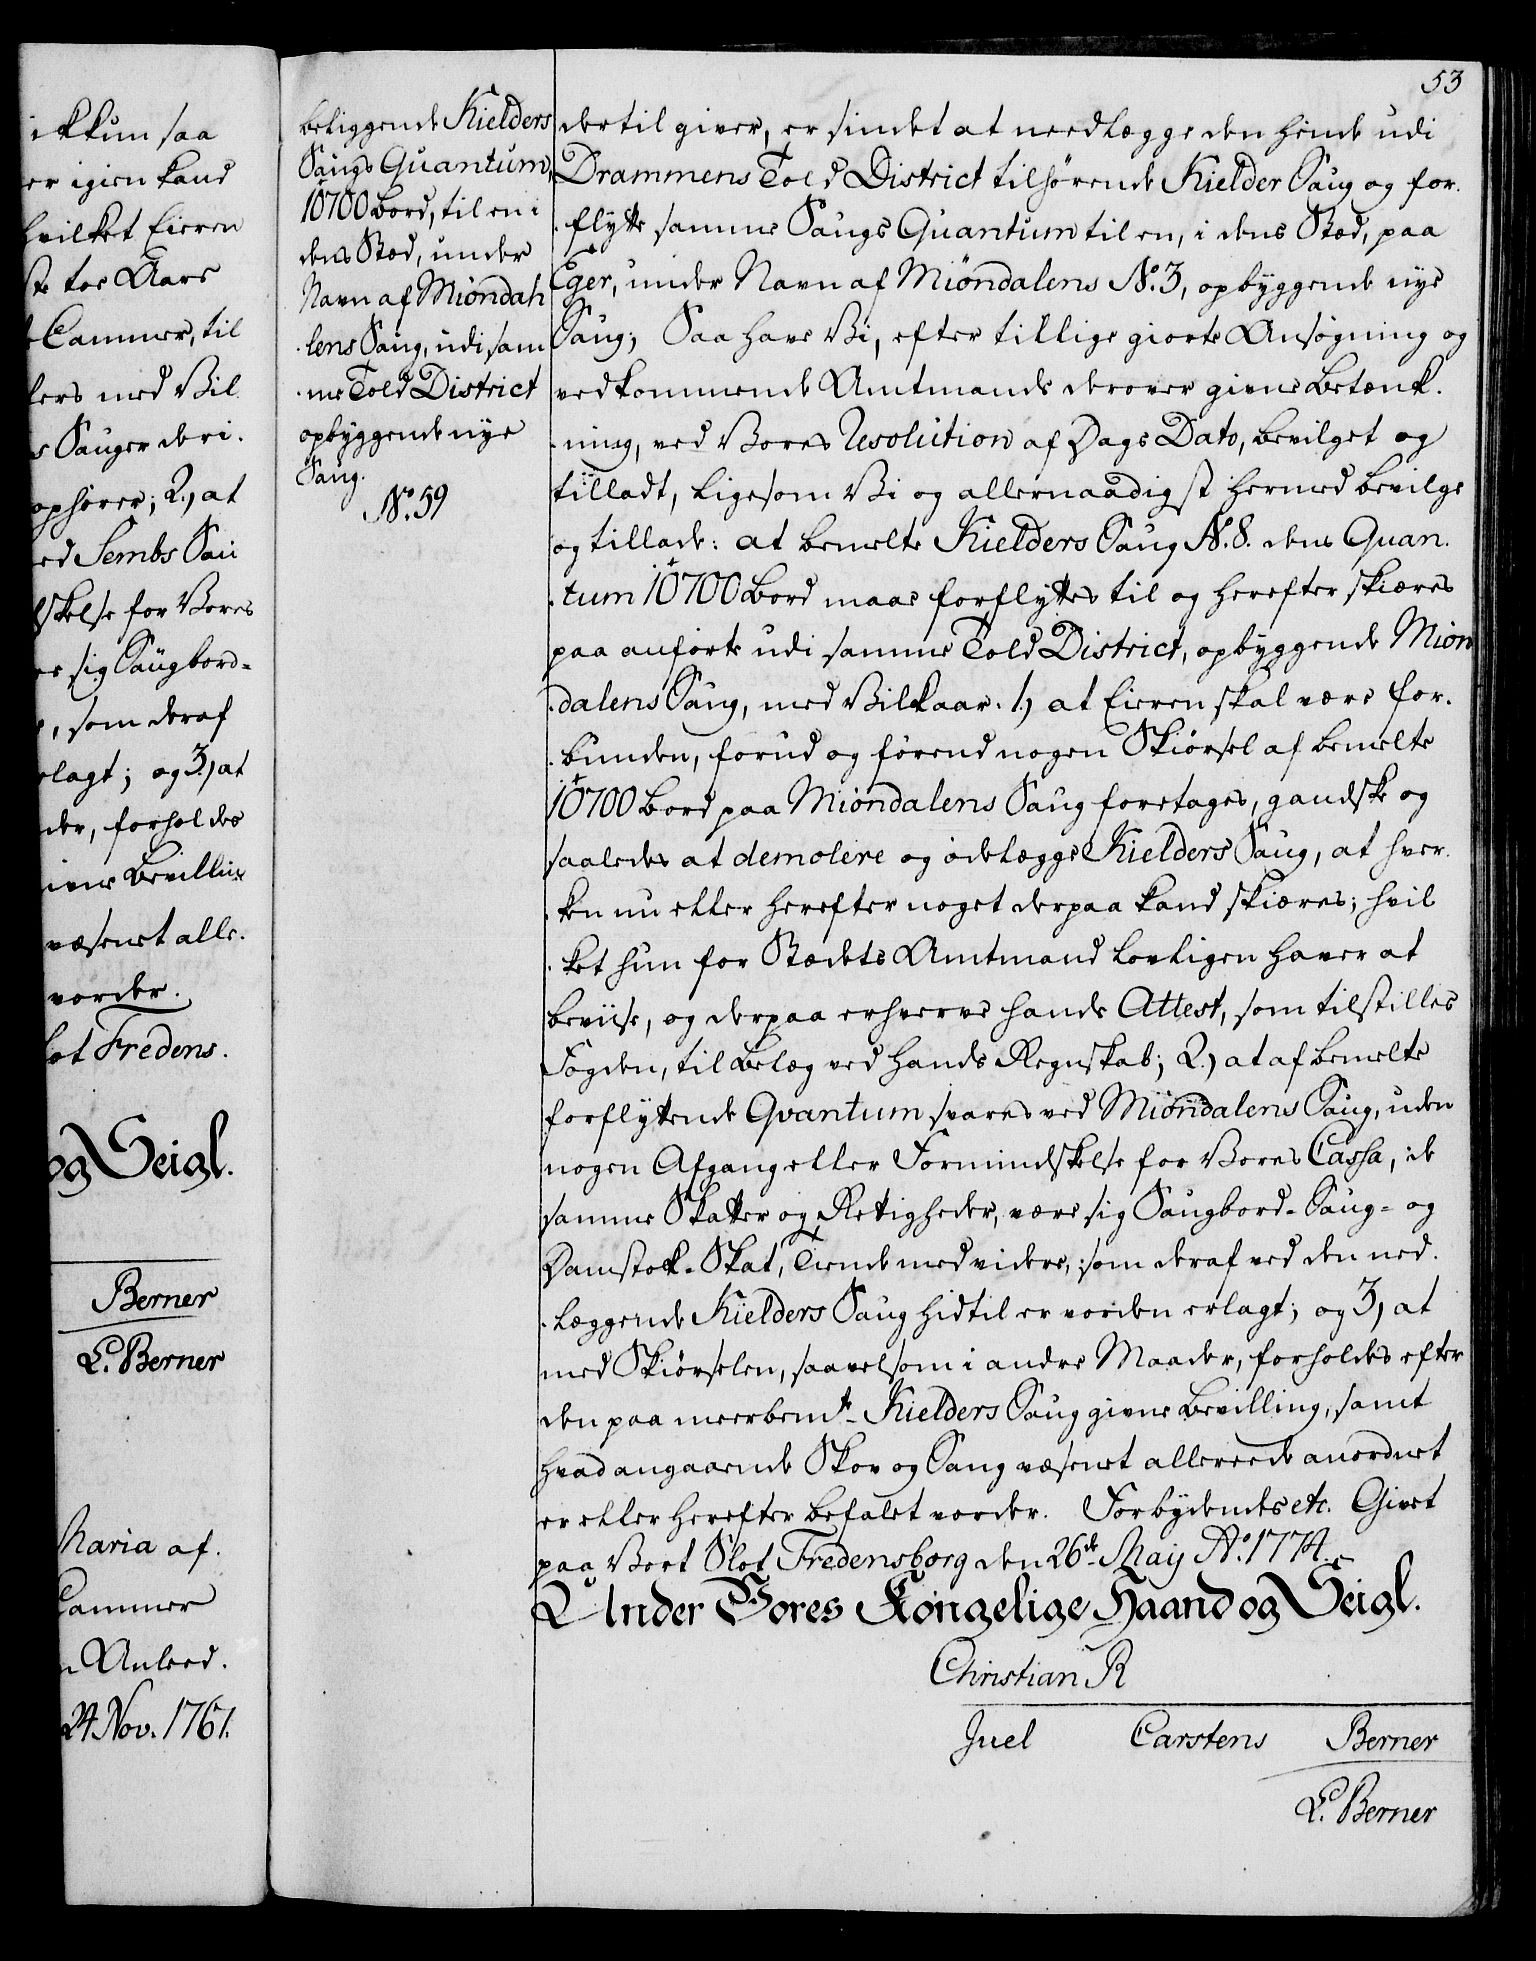 53
ikkun saa
er igien kand
hvilket Eieren
ste toe Aars
Cammer, til
lers med Vil
s Sauger deri.
ophører; 2.) at
ed Sembs Sau
dskelse for Vores
re sig Saugbord-
e, som deraf
rlagt; og 3.) at
der, forholdes
ivne Bevilling
væsenet alle.
vorder.
lot Fredens.
og Seigl.
Berner
L. Berner
Maria af.
Cammer
n Anleed.
24 Nov. 1767.
beliggende Kielders
Saugs Quantum,
10700 bord, til en i
dens Stæd, under
Navn af Miøndah
lens Saug, udi sam
me Told District
opbyggende nye
Saug.
No. 59
dertil giver, er sindet at needlægge den hende udi
Drammens Told District tilhørende Kielder Saug og for.
flytte samme Saugs Quantum til en, i dens Stæd, paa
Eger, under Navn af Miøndalens No. 3, opbyggende nye
Saug; Saa have Vi, efter tillige giorte Ansøgning og
vedkommende Amtmands derover givne Betænk.
ning, ved Vores Resolution af Dags Dato, bevilget og
tilladt, ligesom Vi og allernaadigst hermed bevilge
og tillade: at bemelte Kielders Saug N. 8. dens Quan.
tum 10700 Bord maae forflyttes til og herefter skiæres
paa anførte udi samme Told District, opbyggende Miøn
dalens Saug, med Vilkaar. 1.) at Eieren skal være for.
bunden, forud og førend nogen Skiørsel af bemelte
10700 Bord paa Miøndalens Saug foretages, gandske og
saaledes at demolere og ødelægge Kielders Saug, at hver.
ken nu eller herefter noget derpaa kand skiæres; hvil
ket hun for Stædets Amtmand lovligen haver at
beviise, og derpaa erhverve hands Attest, som tilstilles
Fogden, til Belæg ved hands Regnskab; 2.) at af bemelte
forflyttende Qvantum svares ved Miøndalens Saug, uden
nogen Afgang eller Formindskelse for Vores Cassa, de
samme Skatter og Rettigheder, være sig Saugbord- Saug- og
Damstok-Skat, Tiende med videre, som deraf ved den ned.
læggende Kielders Saug hidtil er vorden erlagt; og 3) at
med Skiørselen, saavelsom i andre Maader, forholdes efter
den paa meerbemte Kielders Saug givne Bevilling, samt
hvad angaaende Skov og Saug væsenet allereede anordnet
er eller herefter befalet vorder. Forbydendes etc. Givet
paa Vort Slot Fredensborg den 26de May Ao. 1774.
Under Vores Kongelige Haand og Seigl.
Christian R
Juel Carstens Berner
L. Berner